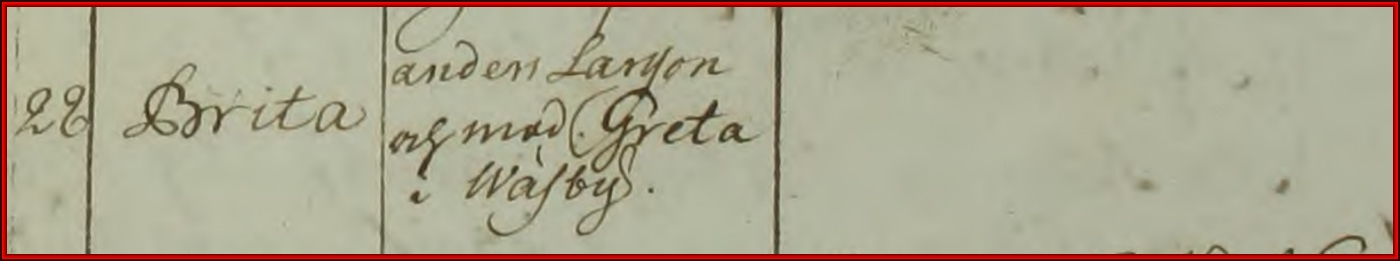 22
Brita
anders Larsson
och mod. Greta
i Wäsby.